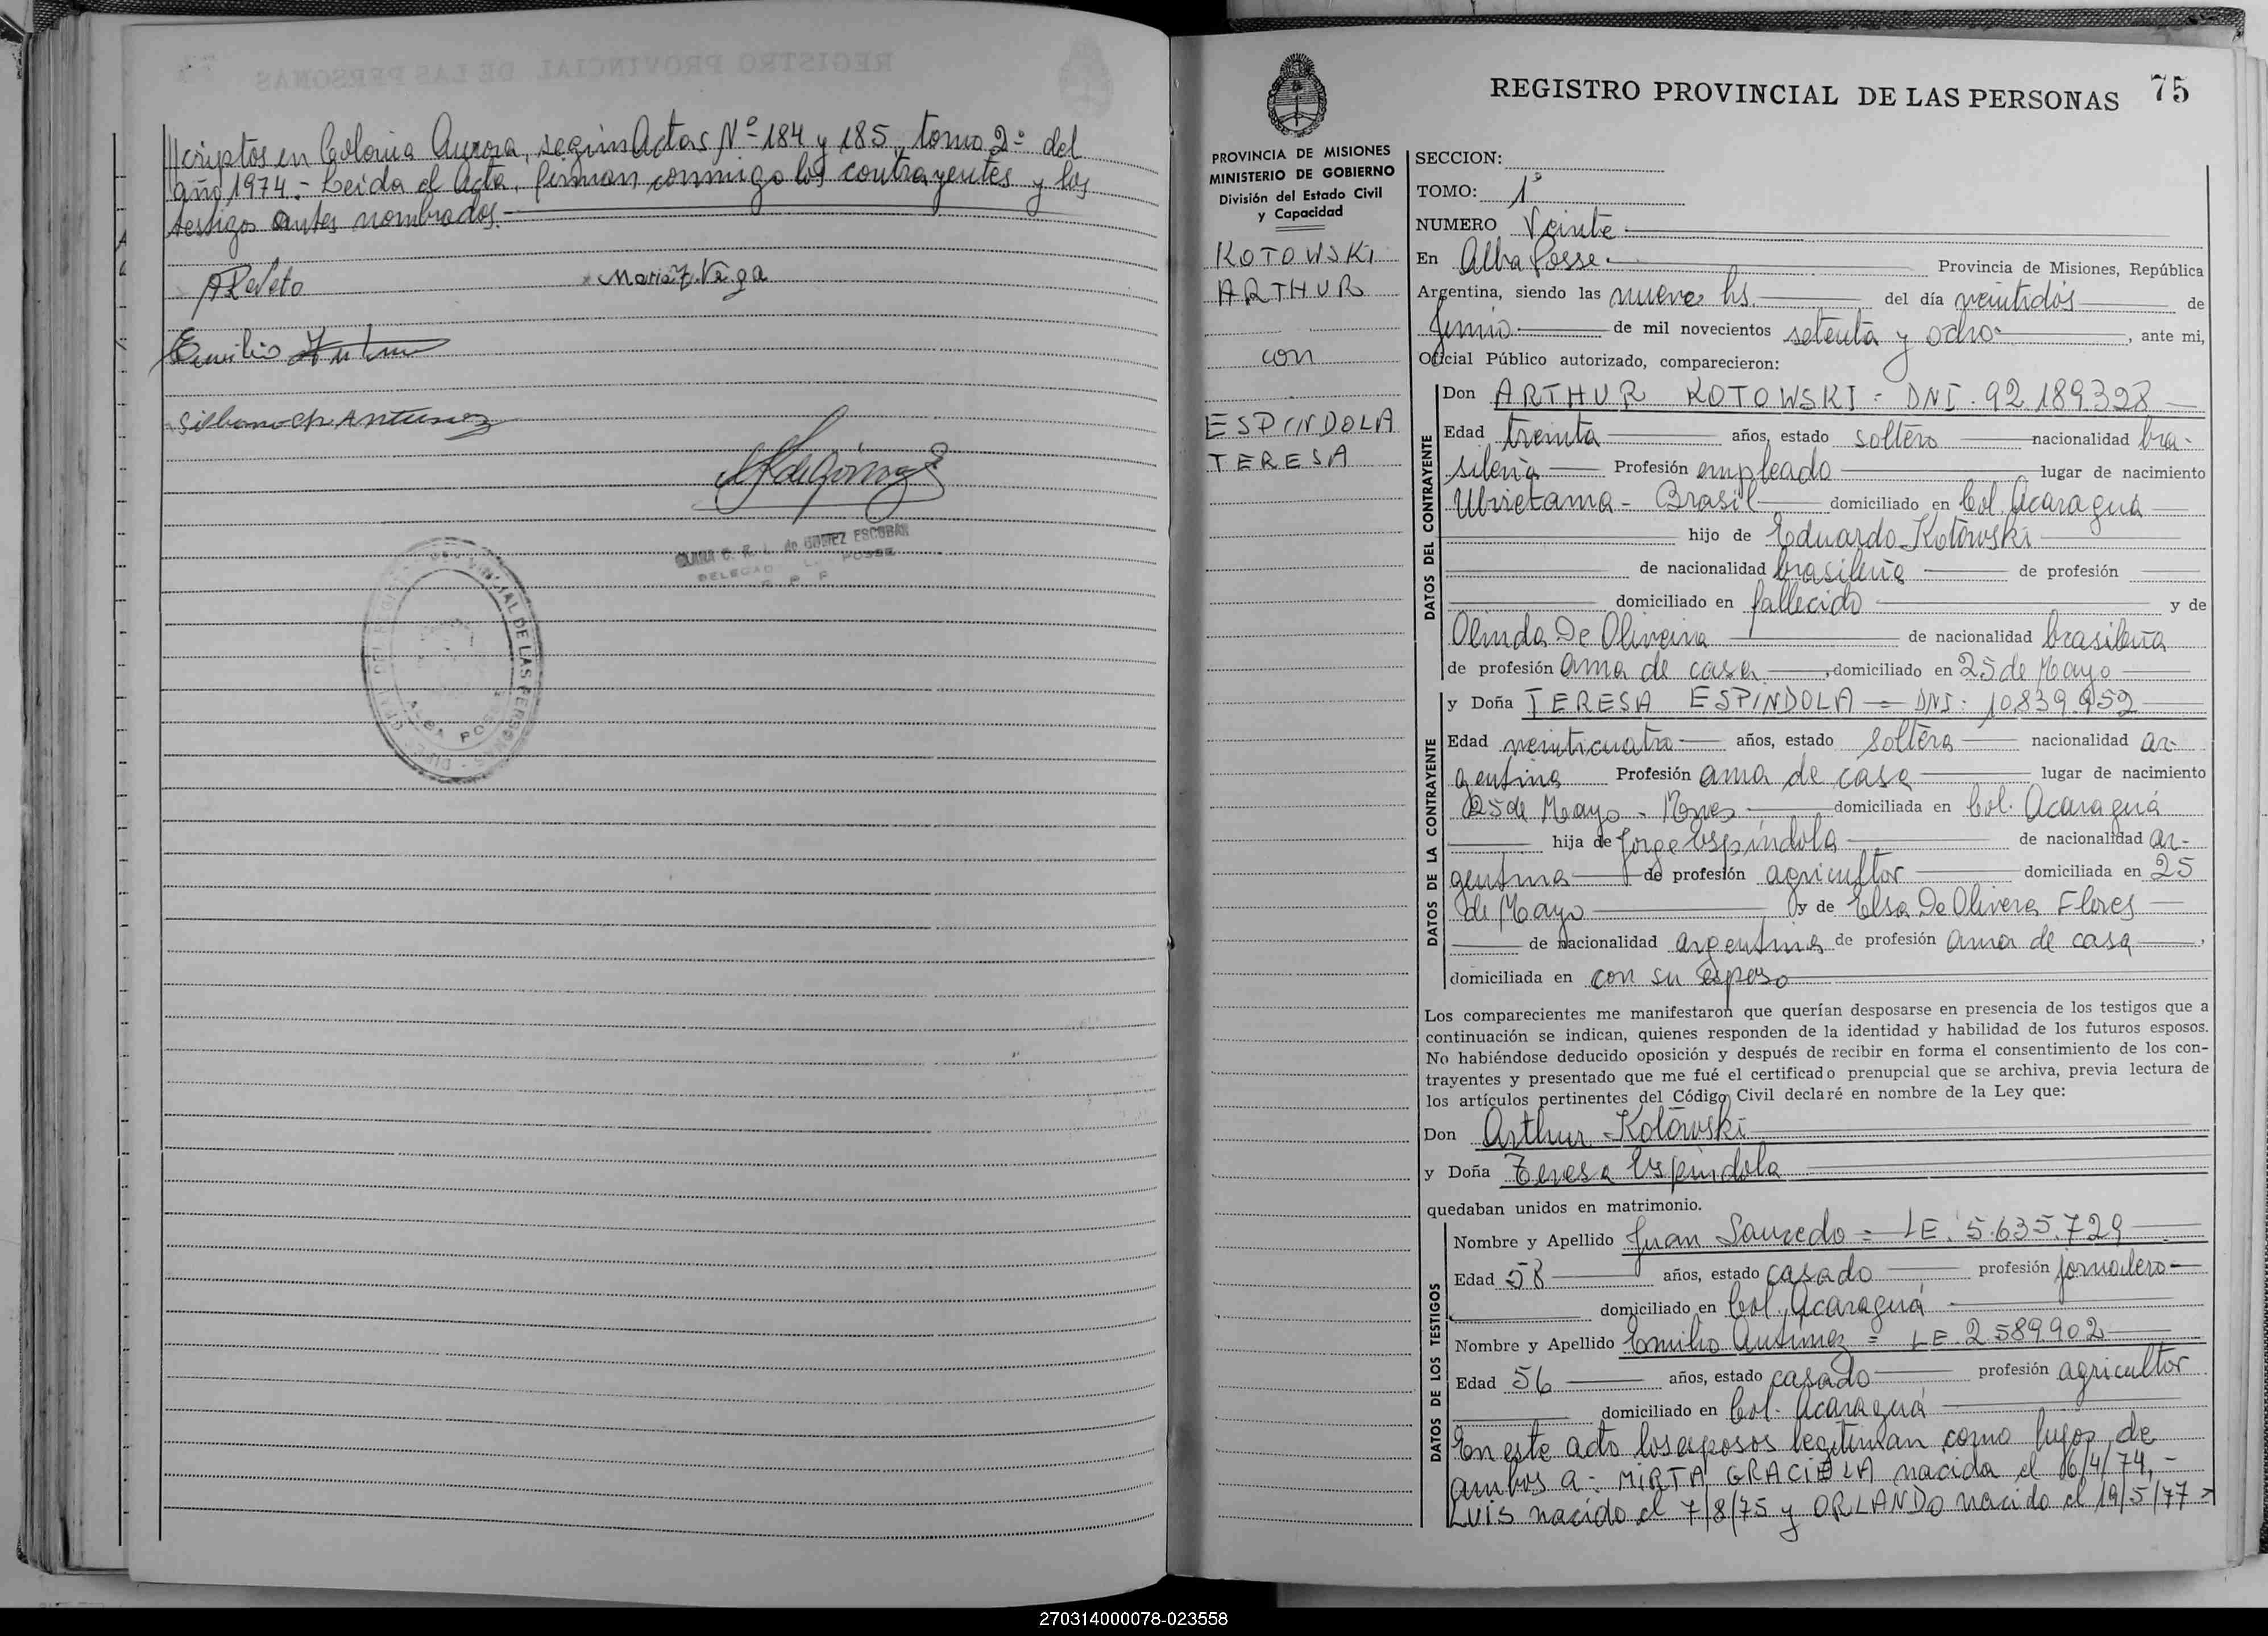 criptos en Colonia Aurora, según Actas Nº 184 y 185, tomo 2º del
año 1974.- Leida el Acta, firman conmigo los contrayentes y los
testigos antes nombrados.-
Maria Z. Vega
Emilio
Silbano Antunez
GOMEZ ESCOBAR
DELEGAD POSSE
R. P. P
DE LAS PERSONAS
ALBA POSSE
REGISTRO PROVINCIAL DE LAS PERSONAS 75
PROVINCIA DE MISIONES
MINISTERIO DE GOBIERNO
División del Estado Civil
y Capacidad
KOTOWSKI
ARTHUR
con
ESPINDOLA
TERESA
SECCION:
TOMO: 1º
NUMERO Veinte
En Alba Posse. Provincia de Misiones, República
Argentina, siendo las nueve hs. del día veintidós de
Junio de mil novecientos setenta y ocho , ante mi,
Oficial Público autorizado, comparecieron:
DATOS DEL CONTRAYENTE
Don ARTHUR KOTOWSKI = DNI. 92.189.328
Edad treinta años, estado soltero nacionalidad bra-
sileña Profesión empleado lugar de nacimiento
Ubiretama - Brasil domiciliado en Col. Acaraguá
hijo de Eduardo Kotowski
de nacionalidad brasileña de profesión
domiciliado en fallecido y de
Olinda De Oliveira de nacionalidad brasileña
de profesión ama de casa , domiciliado en 25 de Mayo
DATOS DE LA CONTRAYENTE
y Doña TERESA ESPINDOLA = DNI. 10.839.952
Edad veinticuatro años, estado soltera nacionalidad ar-
gentina Profesión ama de casa lugar de nacimiento
25 de Mayo - Mnes domiciliada en Col. Acaraguá
hija de Jorge Espíndola de nacionalidad ar-
gentina de profesión agricultor domiciliada en 25
de Mayo y de Elsa De Olivera Flores
de nacionalidad argentina de profesión ama de casa ,
domiciliada en con su esposo
Los comparecientes me manifestaron que querían desposarse en presencia de los testigos que a
continuación se indican, quienes responden de la identidad y habilidad de los futuros esposos.
No habiéndose deducido oposición y después de recibir en forma el consentimiento de los con-
trayentes y presentado que me fué el certificado prenupcial que se archiva, previa lectura de
los artículos pertinentes del Código Civil declaré en nombre de la Ley que:
Don Arthur Kotowski
y Doña Teresa Espíndola
quedaban unidos en matrimonio.
DATOS DE LOS TESTIGOS
Nombre y Apellido Juan Saucedo = LE. 5.635.729
Edad 58 años, estado casado profesión jornalero
domiciliado en Col. Acaraguá
Nombre y Apellido Emilio Antunez = LE. 2.589.902
Edad 56 años, estado casado profesión agricultor
domiciliado en Col. Acaraguá
En este acto los esposos legitiman como hijos de
ambos a: MIRTA GRACIELA nacida el 16/4/74,-
LUIS nacido el 7/8/75 y ORLANDO nacido el 19/5/77
270314000078-023558